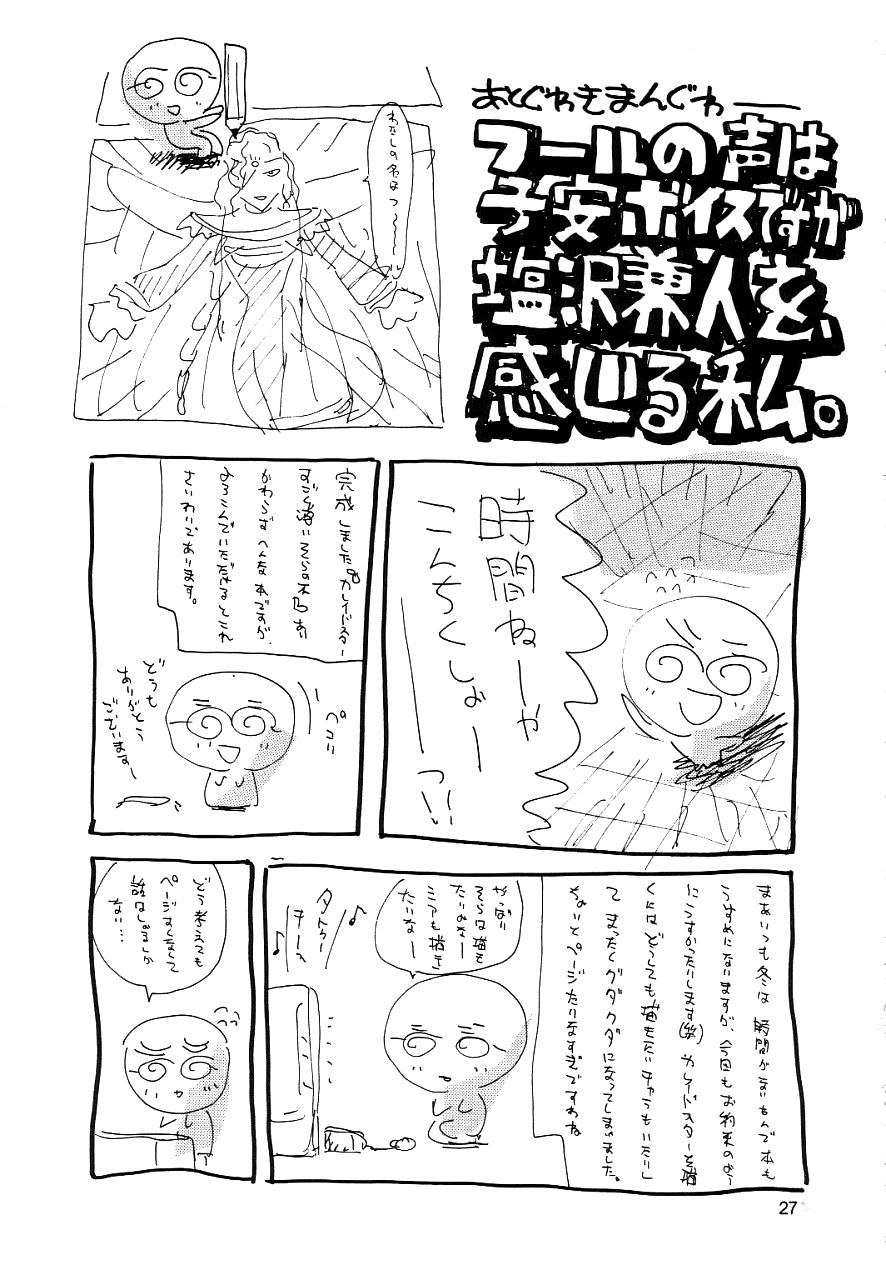 あとぐわきまんぐわ——
フールの声は
子安ボイスですが
塩沢兼人を、
感じる私。
わたしの名はっ〜〜〜
時間ねーや
こんちくしょーーっ!!
完成しました。カレイドスター
すごく薄いそらの本
かわらずへんな本ですが、
よろこんでいただけるとこれ
さいわいであります。
ペコリ
どうも
ありがとう
ございますー
まあいつも冬は時間がないもんで本も
うすめになりますが、今回もお約束のよう
にうすかったりします(笑)カレイドスターを描
くにはどうしても描きたいキャラもいたりし
て まったくグダグダになってしまいました。
ちょいとページたりなすぎですわね
やっぱり
そらは描き
たいよなー
ミアも描き
たいなー
タクゥー
キーィ
どう考えても
ページ少なくて
話なしでるしか
ない…
27